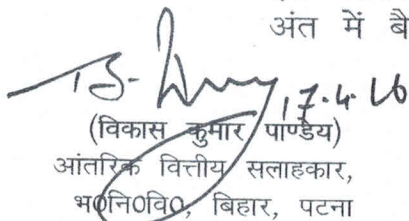 अंत में बै
17.4.26
(विकास कुमार पाण्डेय)
आंतरिक वित्तीय सलाहकार,
भ०नि०वि०, बिहार, पटना